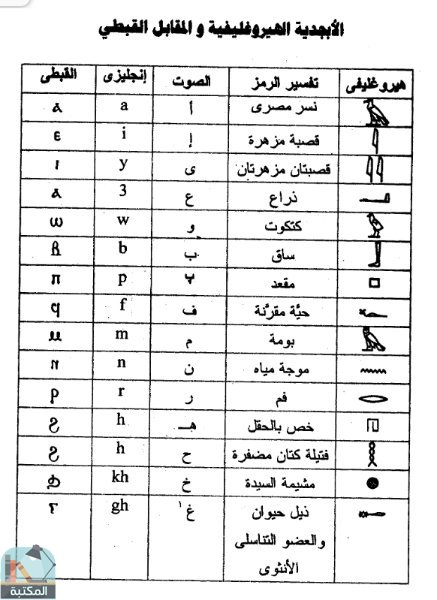 الأبجدية الهيروغليفية و المقابل القبطي
هيروغليفى تفسير الرمز الصوت إنجليزى القبطى
نسر مصرى أ a ⲁ
قصبة مزهرة إ i ⲉ
قصبتان مزهرتان ى y ⲓ
ذراع ع 3 ⲁ
كتكوت و w ⲱ
ساق ب b ⲃ
مقعد پ p ⲡ
حيَّة مقرَّنة ف f ϥ
بومة م m ⲙ
موجة مياه ن n ⲛ
فم ر r ⲣ
خص بالحقل هـ h ϩ
فتيلة كتان مضفرة ح h ϩ
مشيمة السيدة خ kh
ذيل حيوان غ ١ gh ⲅ
والعضو التناسلى
الأنثوى
المكتبة